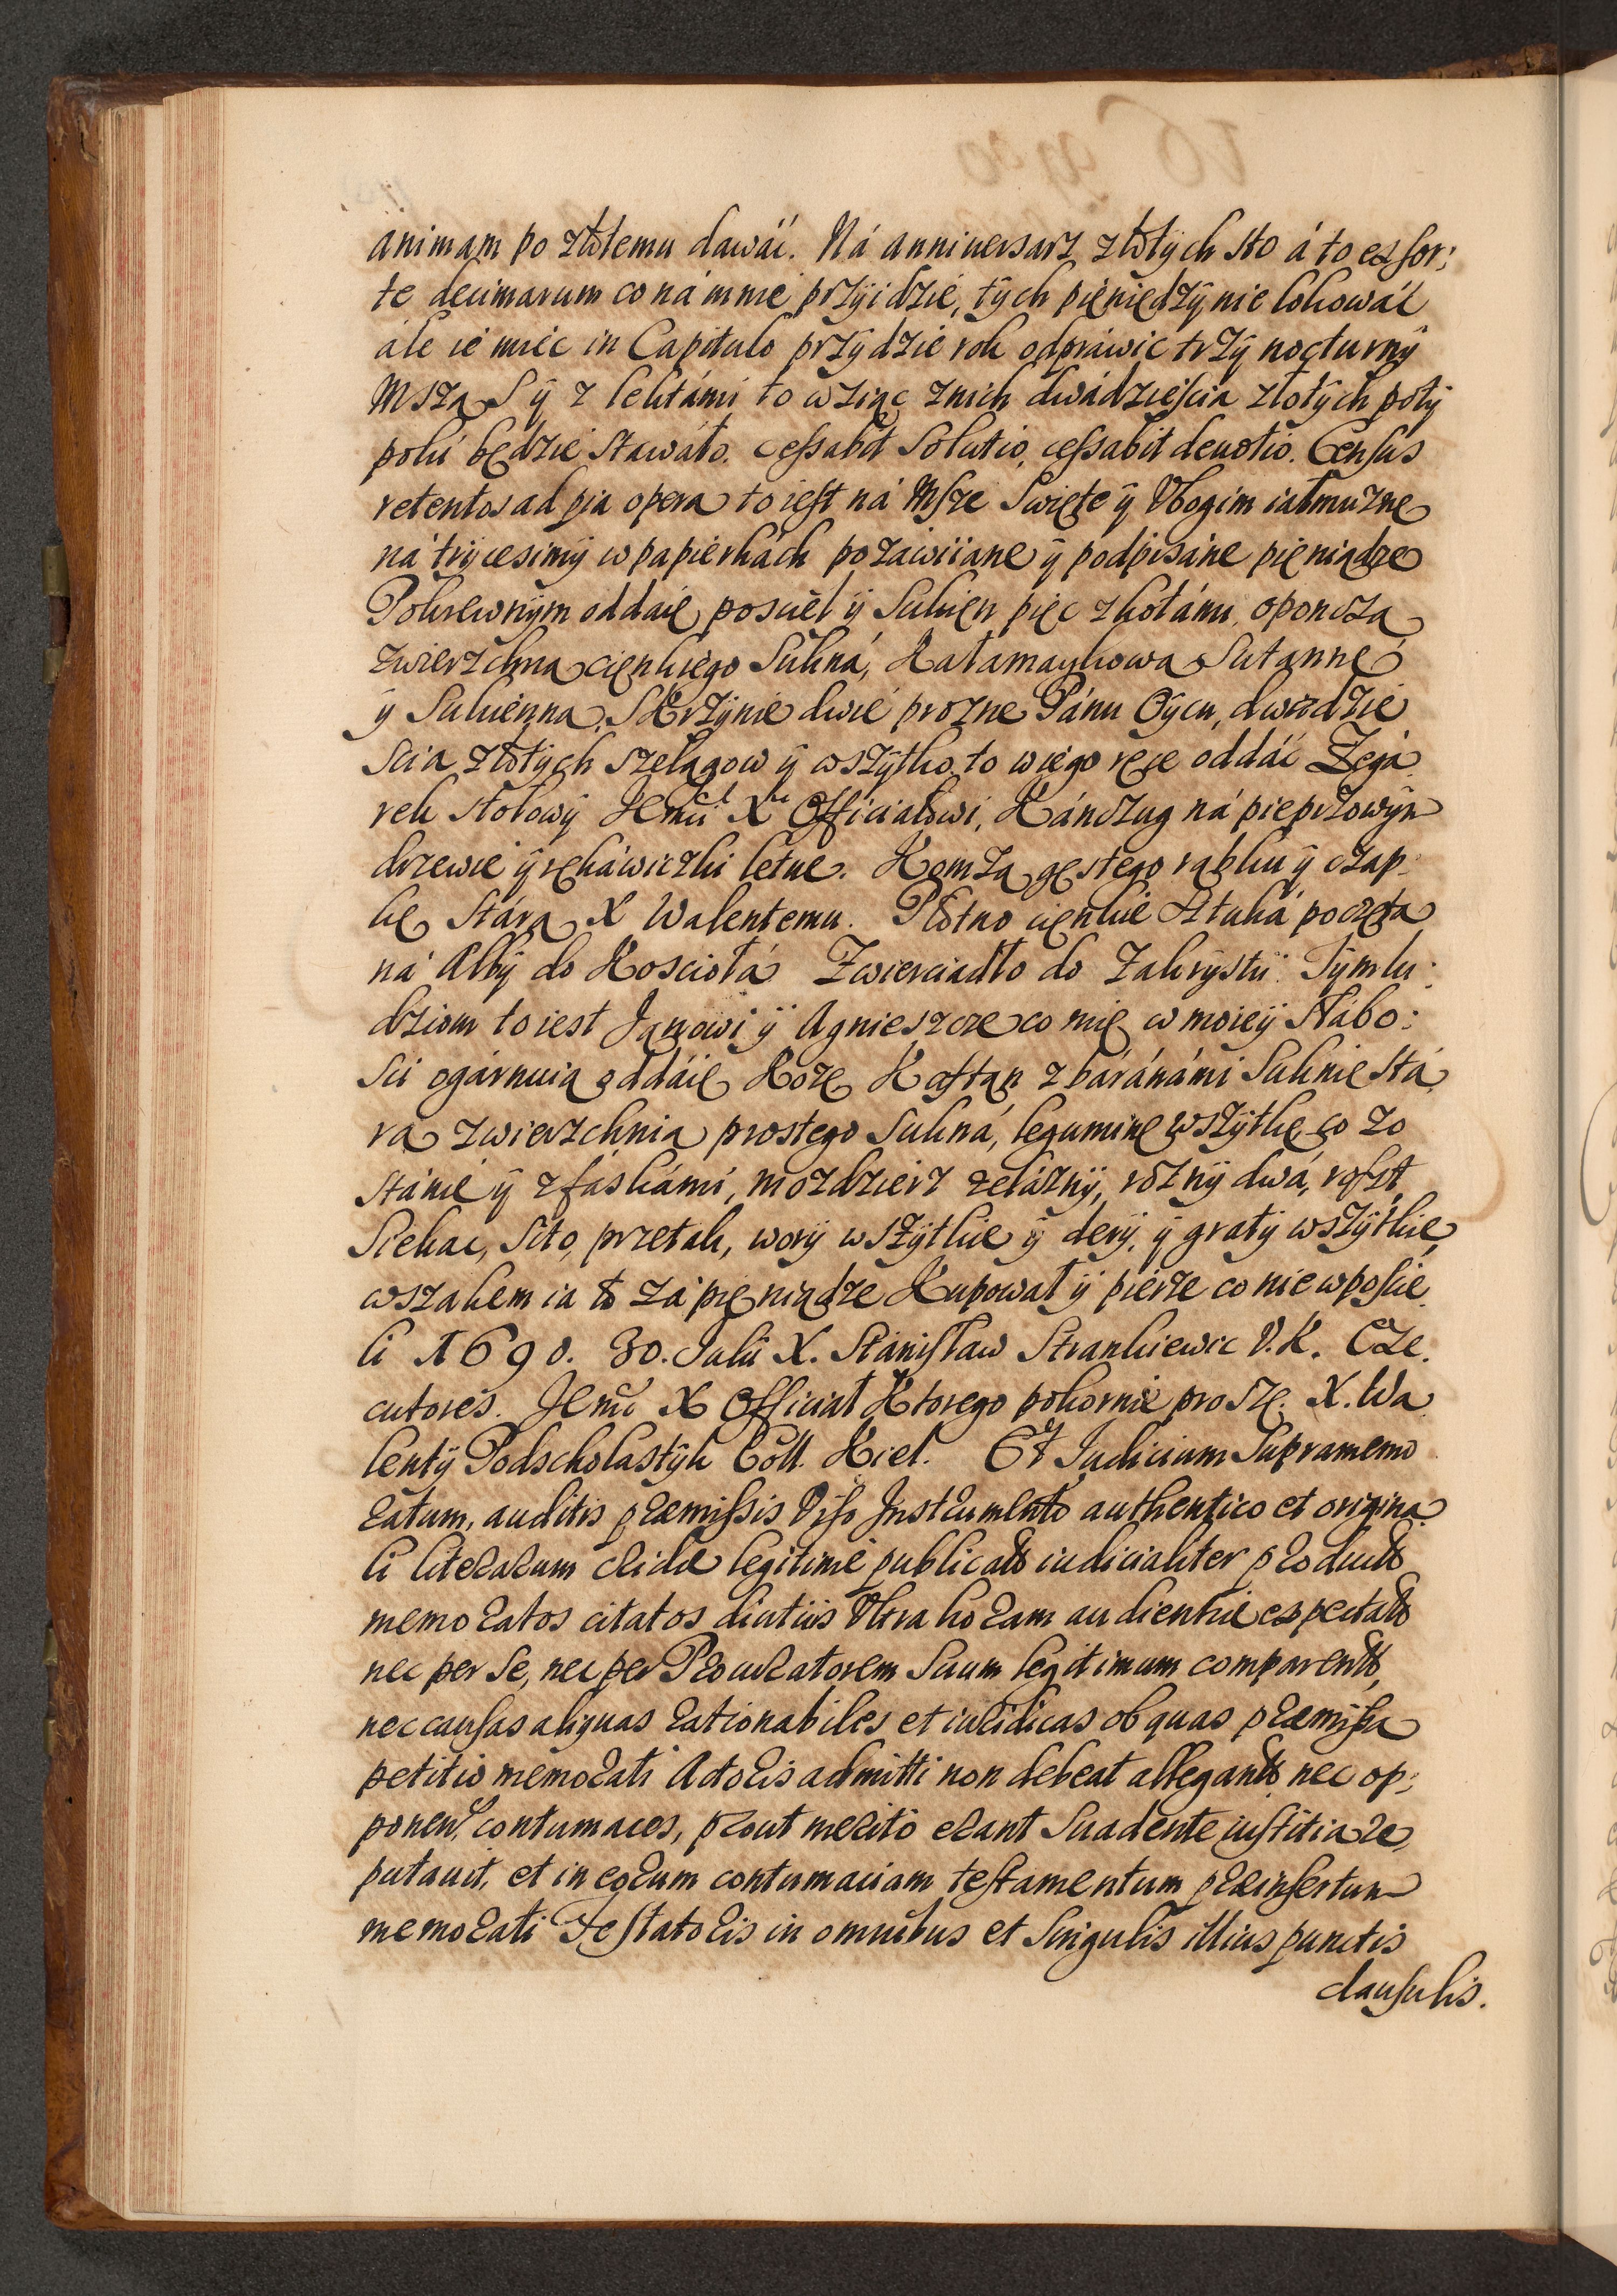 animam po złotemu dawáć. Ná anniuersarz złotych sto á to ex sor:
te decimarum co ná mnie przyidzie, tych pieniędzy nie lokowáć
ále ie mieć in Capitulo przydzie rok odpráwić trzy nocturny
Msza S y z lektámi to wziąc znich dwádzieścia złotych poty
poki będzie stawáło. cessabit solutio, cessabit deuotio. Census
retentos ad pia opera to iest ná Msze Swięte y Vbogim iałmużnę
ná trycesimy w papierkách pozawiiane y podpisáne pieniądze
Pokrewnym oddaię posciel y Sukien pięc z kołámi, oponcza
zwierzchna cienkiego Sukná, Kałamaykowa Sutannę
y Sukienna, Skrzynie dwie prozne Pánu Oycu, dwadzie
scia złotych szelągow y wszytko to w iego ręce oddáć Zegá
rek stołowy Jemci Xu Officiałowi, Kánczug ná pieprzowym
drzewie y rękáwiczki letne. Komza gęstego rąbku y czap
kę Stára X Walentemu. Płotno cienkie Sztuká poczęta
ná Alby do Kosciołá Zwierciadło do Zakrystii. Tym lu:
dziom to iest Janowi y Agnieszce co mię w moiey słábo:
sci ogárnuią oddáię Kozę Kaftan z báránámi Suknie stá
ra zwierzchnia prostego Sukná, leguminę wszytkę co zo
stánie y z fáskámi, mozdzierz zelázny, rożny dwá, roszt
Siekac, Sito, przetak, wory wszytkie y dery, y graty wszytkie,
wszakem ia to zá pieniądze Kupował y pierze co nie w poscie
li 1690. 30. Julii X. Stánisław Strankiewic V.K. Exe
cutores. Jemci X Officiał Ktorego pokornie proszę. X. Wa
lenty Podscholastyk Coll. Kiel. Et Judicium Supramemo
ratum, auditis præmissis Viso Instrumento authentico et origina
li literarum cridæ legitimè publicatis iudicialiter productis
memoratos citatos diutius Vltra horam audientiæ expectatos
nec per se, nec per Procuratorem suum legitimum comparentes,
nec causas aliquas rationabiles et iuridicas ob quas præmissa
petitio memorati Actoris admitti non debeat allegantes nec op:
ponen. contumaces, prout meritò erant suadente iustitia re
putauit, et in eorum contumaciam testamentum præinsertum
memorati Testatoris in omnibus et singulis illius punctis
clausulis.